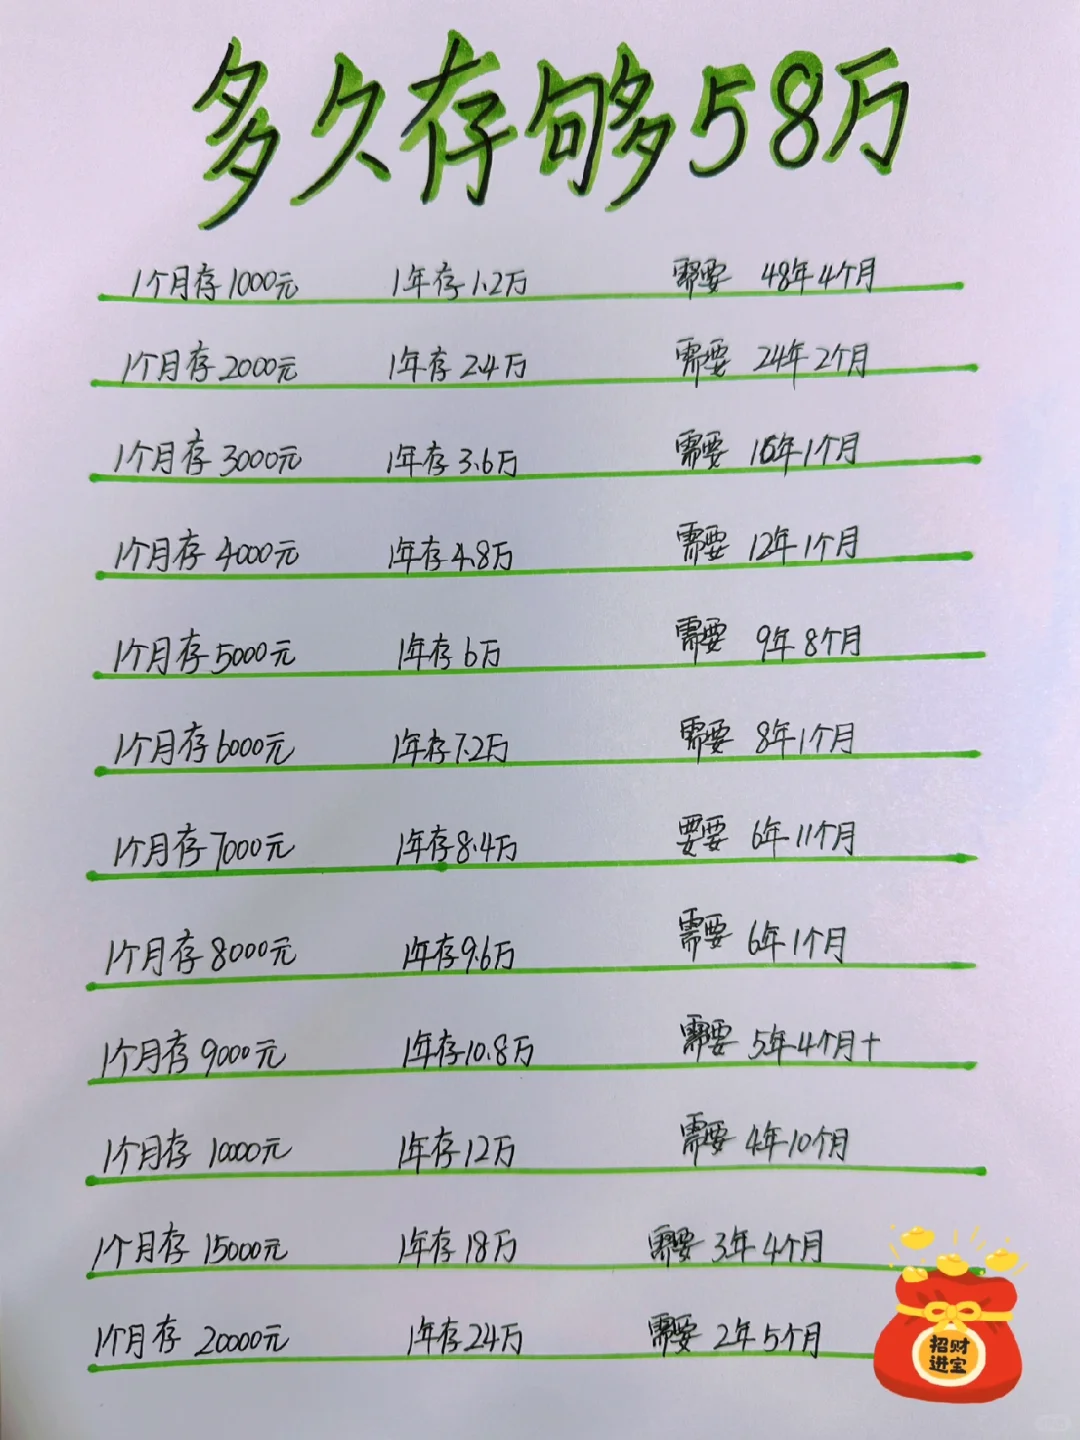 多久存够58万
1个月存1000元 1年存1.2万 需要 48年4个月
1个月存2000元 1年存2.4万 需要 24年2个月
1个月存3000元 1年存3.6万 需要 16年1个月
1个月存4000元 1年存4.8万 需要 12年1个月
1个月存5000元 1年存6万 需要 9年8个月
1个月存6000元 1年存7.2万 需要 8年1个月
1个月存7000元 1年存8.4万 要要 6年11个月
1个月存8000元 1年存9.6万 需要 6年1个月
1个月存9000元 1年存10.8万 需要 5年4个月+
1个月存10000元 1年存12万 需要 4年10个月
1个月存15000元 1年存18万 需要 3年4个月
1个月存20000元 1年存24万 需要 2年5个月
招财
进宝